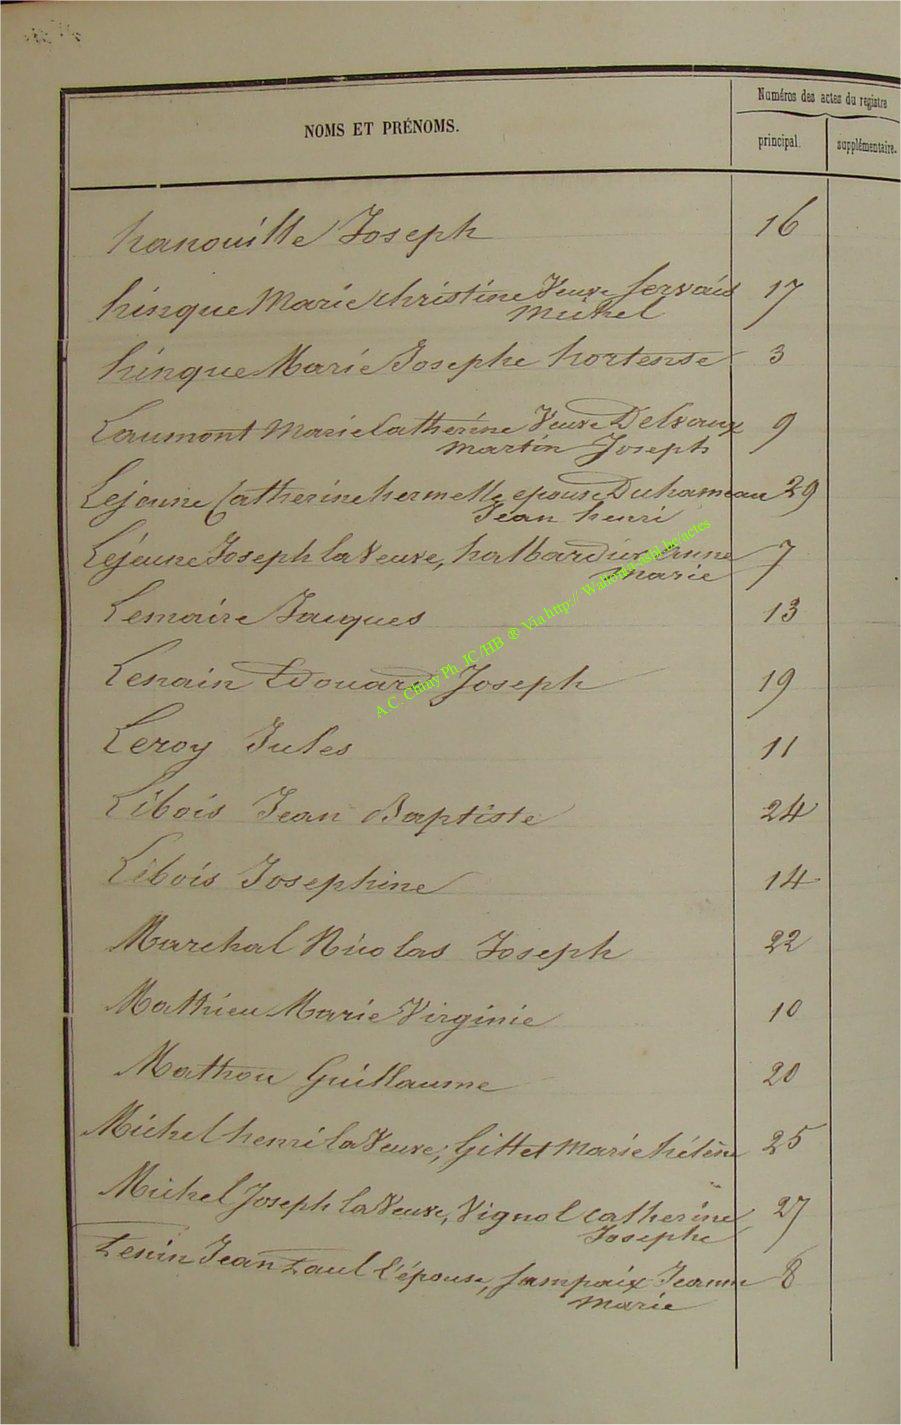 Numéros des actes du registre
NOMS ET PRÉNOMS.
principal. supplémentaire.
hanouille Joseph 16
hinque Marie Christine Veuve Servais 17
Michel
hinque Marie Josephe hortense 3
Laumont Marie Catherine Veuve Delvaux 9
Martin Joseph
Lejeune Catherine hermelle epouse Duhameau 29
Jean henri
Lejeune Joseph la Veuve, halbardier Anne 7
Marie
Lemaire Jacques 13
Lenain Edouard Joseph 19
Leroy Jules 11
Libois Jean Baptiste 24
Libois Josephine 14
Marchal Nicolas Joseph 22
Mathieu Marie Virginie 10
Mathou Guillaume 20
Michel henri la Veuve, Gittet Marie hélène 25
Michel Joseph la Veuve, Vignol Catherine 27
Josephe
Jean Paul l'épouse, Sampaix Jeanne 8
Marie
A.C. Chiny Ph. JC/HB ® Via http://